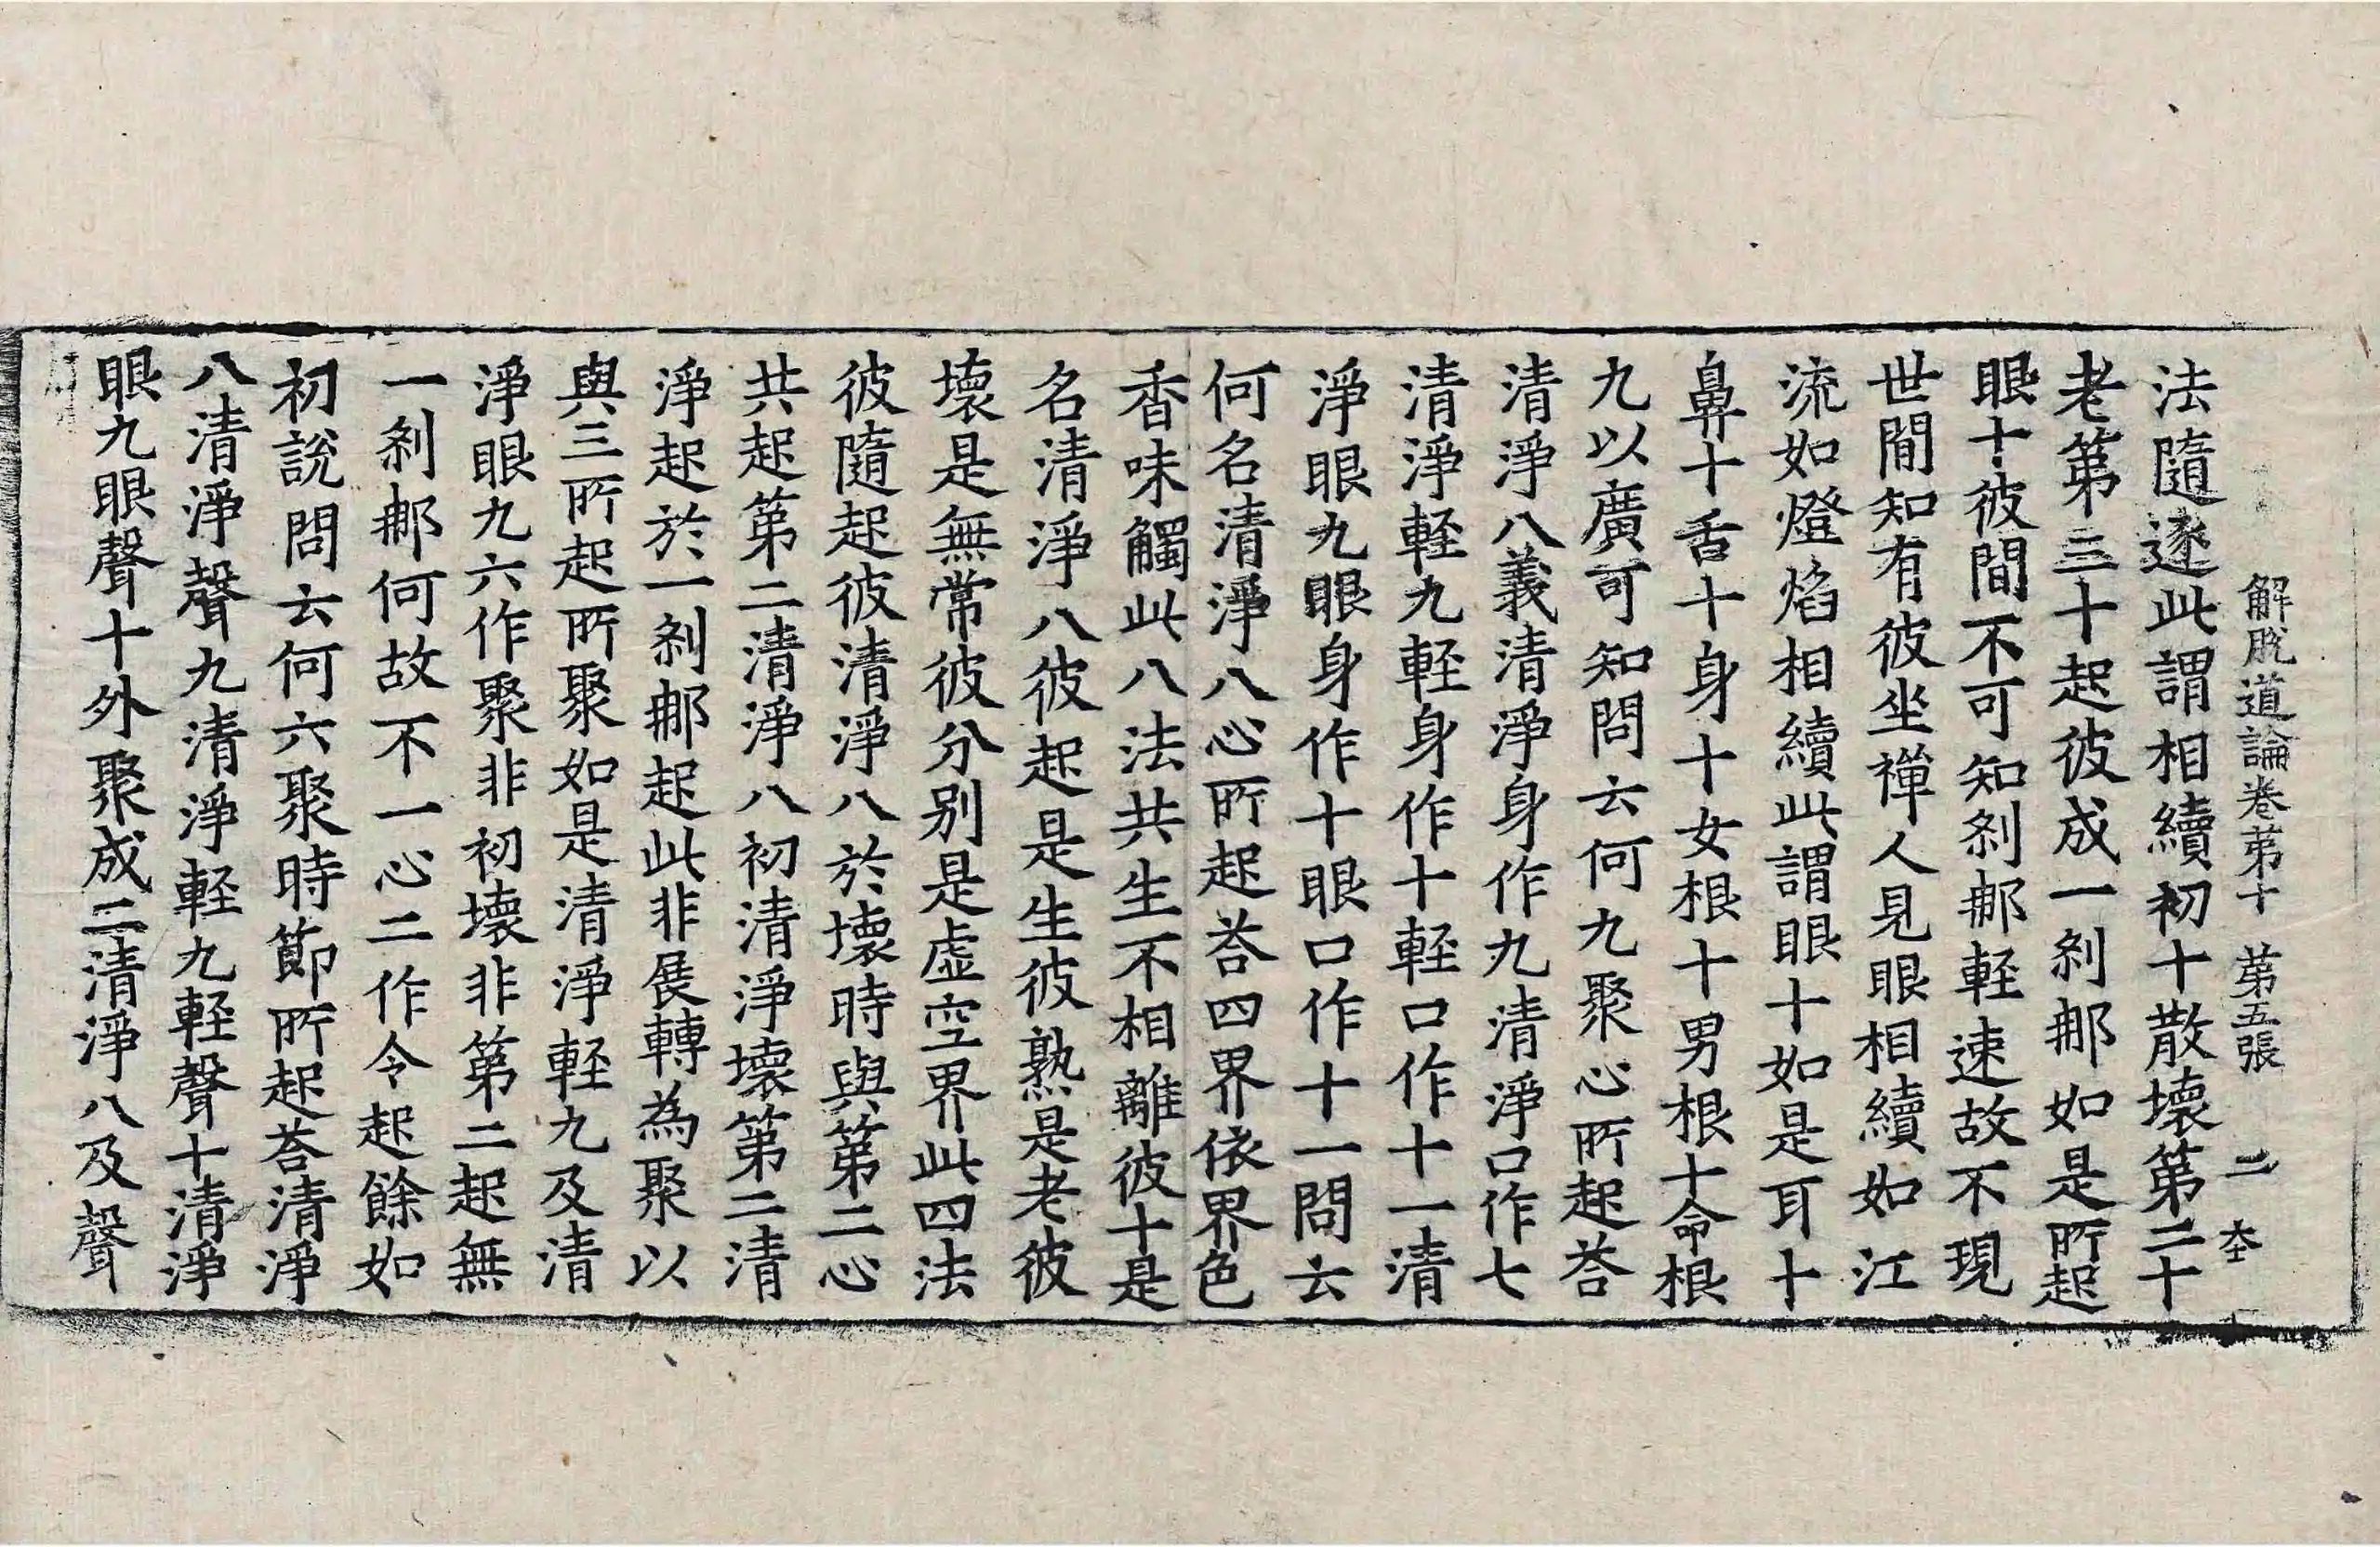 解脫道論卷第十 第五張 二 杢
法隨逐此謂相續初十散壞第二十
老第三十起彼成一剎𨚗如是所起
眼十彼間不可知剎𨚗軽速故不現
世間知有彼坐禪人見眼相續如江
流如燈焰相續此謂眼十如是耳十
鼻十舌十身十女根十男根十命根
九以廣可知問云何九聚心所起荅
清淨八義清淨身作九清淨口作七
清淨軽九軽身作十軽口作十一清
淨眼九眼身作十眼口作十一問云
何名清淨八心所起荅四界依界色
香味觸此八法共生不相離彼十是
名清淨八彼起是生彼熟是老彼
壞是無常彼分別是虛空界此四法
彼隨起彼清淨八於壞時與第二心
共起第二清淨八初清淨壞第二清
淨起於一剎𨚗起此非展轉為聚以
與三所起所聚如是清淨軽九及清
淨眼九六作聚非初壞非第二起無
一剎𨚗何故不一心二作令起餘如
初說問云何六聚時節所起荅清淨
八清淨聲九清淨軽九軽聲十清淨
眼九眼聲十外聚成二清淨八及聲